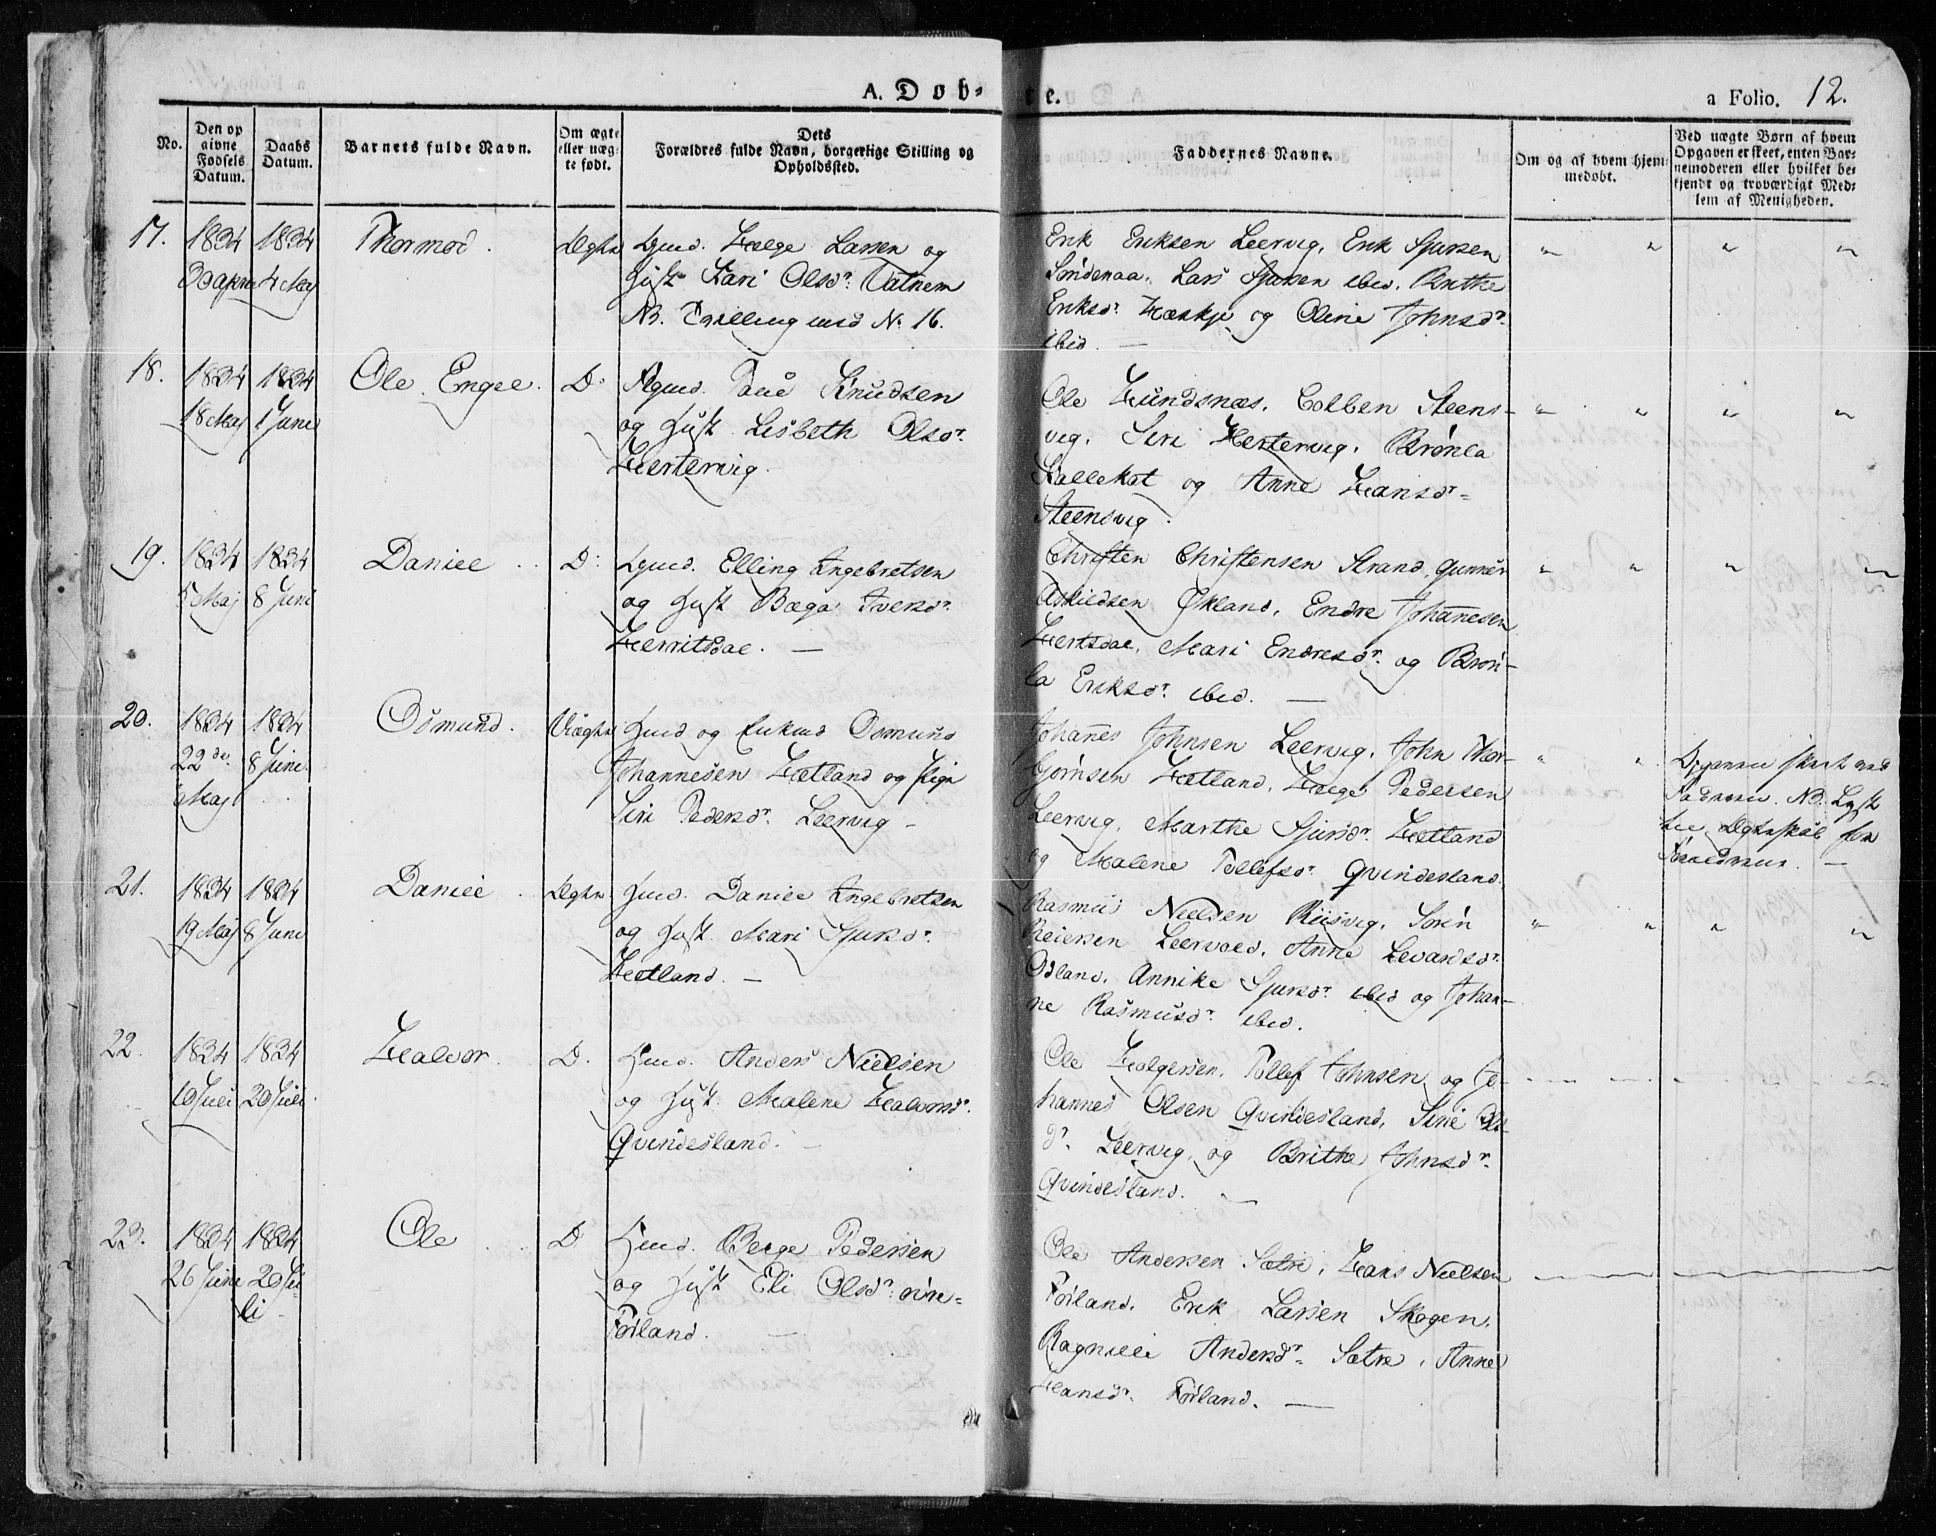 A. Døb-
te.
a Folio. 12.
No.
Den op
givne
Fødsels
Datum.
Daabs
Datum.
Barnets fulde Navn.
Om ægte
eller uæg-
te født.
Dets
Forældres fulde Navn, borgerlige Stilling og
Opholdssted.
Faddernes Navne.
Om og af hvem hjem-
medøbt.
Ved uægte Børn af hvem
Opgaven er skeet, enten Bar-
nemoderen eller hvilket be-
kjendt og troværdigt Med-
lem af Menigheden.
17.
1834
30 april
1834
4 Maj
Thormod.
Ægte
Helge Larsen og
Kari Olsdr. Vatnem
NB. Tvilling med No. 16.
Erik Eriksen Leervig, Erik Sjursen
Søndenaa, Lars Sjursen ibid, Brithe
Eriksdr. og Oline Johnsdr.
ibid. —
18.
1834
18 Maj
1834
1 Juni
Ole Engel.
D:
Knudsen
og Lisbeth Olsdr.
Hertervig.
Ole Hundsnæs, Colben Steens-
vig, Siri Hertervig, Brønla
Kallekot og Anne Hansdr.
Steensvig.
19.
1834
5 Maj
1834
8 Juni
Daniel
D:
Elling Ingebretsen
og Bæga Iversdr.
Herritsdal. —
Christen Christensen Strand, Gunner
Askildsen Økland, Endre Johannesen
Hertsdal, Mari Endresdr. og Brøn-
la Eriksdr. ibid. —
20.
1834
22de
Maj
1834
8 Juni
Osmund.
Uægte
og Enkmd Osmund
Johannesen Hetland og Pige
Siri Pedersdr. Leervig —
Johanes Johnsen Leervig, John Thor-
bjørnsen Hetland, Helge Pedersen
Leervig, Marthe Sjursdr. Hetland
og Malene Tollefsdr. Qvindesland.
NB.
21.
1834
19 Maj
1834
8 Juni
Daniel
Ægte
Daniel Ingebretsen
og Mari Sjursdr.
Hetland. —
Rasmus Nielsen Riisvig, Sørn
Reiersen Leervold, Anne Levardsdr.
Odland, Annike Sjursdr. ibid og Johan-
ne Rasmusdr. ibid.
22.
1834
10 Juli
1834
20 Juli
Halvor.
D.
Anders Nielsen
og Malene Halvorsdr.
Qvindesland. —
Ole Holgersen, Tollef Johnsen og Jo-
hannes Olsen Qvindesland, Sine Ols-
dr. Leervig, og Brithe Johnsdr.
Qvindesland. —
23.
1834
26 Juni
1834
20 Ju-
li
Ole
D.
Berge Pedersen
og Eli Olsdr.
Førland. —
Ole Andersen Sætre, Hans Nielsen
Førland, Erik Larsen Skogen,
Ragnilli Andersdr. Sætre, Anne
Hansdr. Førland. —